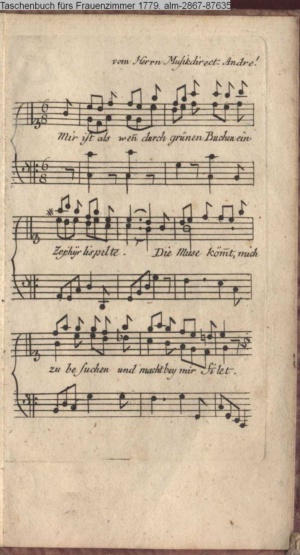 Taschenbuch fürs Frauenzimmer 1779. alm-2867-87635
vom Herrn Musikdirect: Andre!
Mir ist als weñ durch grünen Buchen ein
Zephÿr lispelte. Die Muse köm̃t, mich
zu be suchen und macht bey mir Filet.